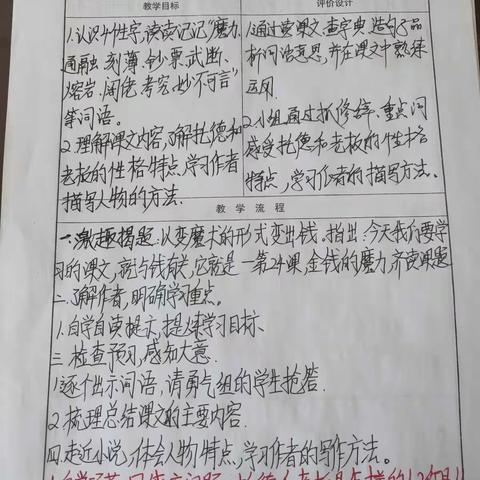 教学目标
评价设计
1.认识4个生字,读读记记“魔力、
通融、刻薄、钞票、武断、
熔岩、阔佬、考究、妙不可言”
等词语。
2.理解课文内容,了解托德和
老板的性格特点,学习作者
描写人物的方法.
1.通过读课文、查字典、造句子品
析词语意思,并在课文中熟练
运用.
2.小组通过抓修辞、重点词
感受托德和老板的性格
特点,学习作者的描写方法。
教 学 流 程
一.激趣揭题:以变魔术的形式变出钱.指出:今天我们要学
习的课文,就与钱有关,它就是一第24课,金钱的魔力,齐读课题
二.了解作者,明确学习重点.
1.自学自读提示,提练学习目标.
三.检查预习,感知大意.
1.逐个出示词语,请勇气组的学生抢答.
2.梳理总结课文的主要内容.
四.走近小说,体会人物特点,学习作者的写作方法。